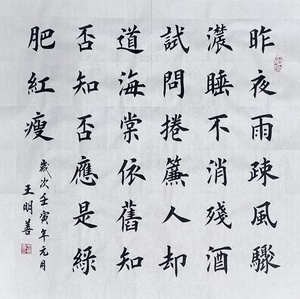 昨夜雨疎風驟
濃睡不消殘酒
試問捲簾人却
道海棠依舊知
否知否應是綠
肥紅瘦
歲次壬寅年元月
王明善